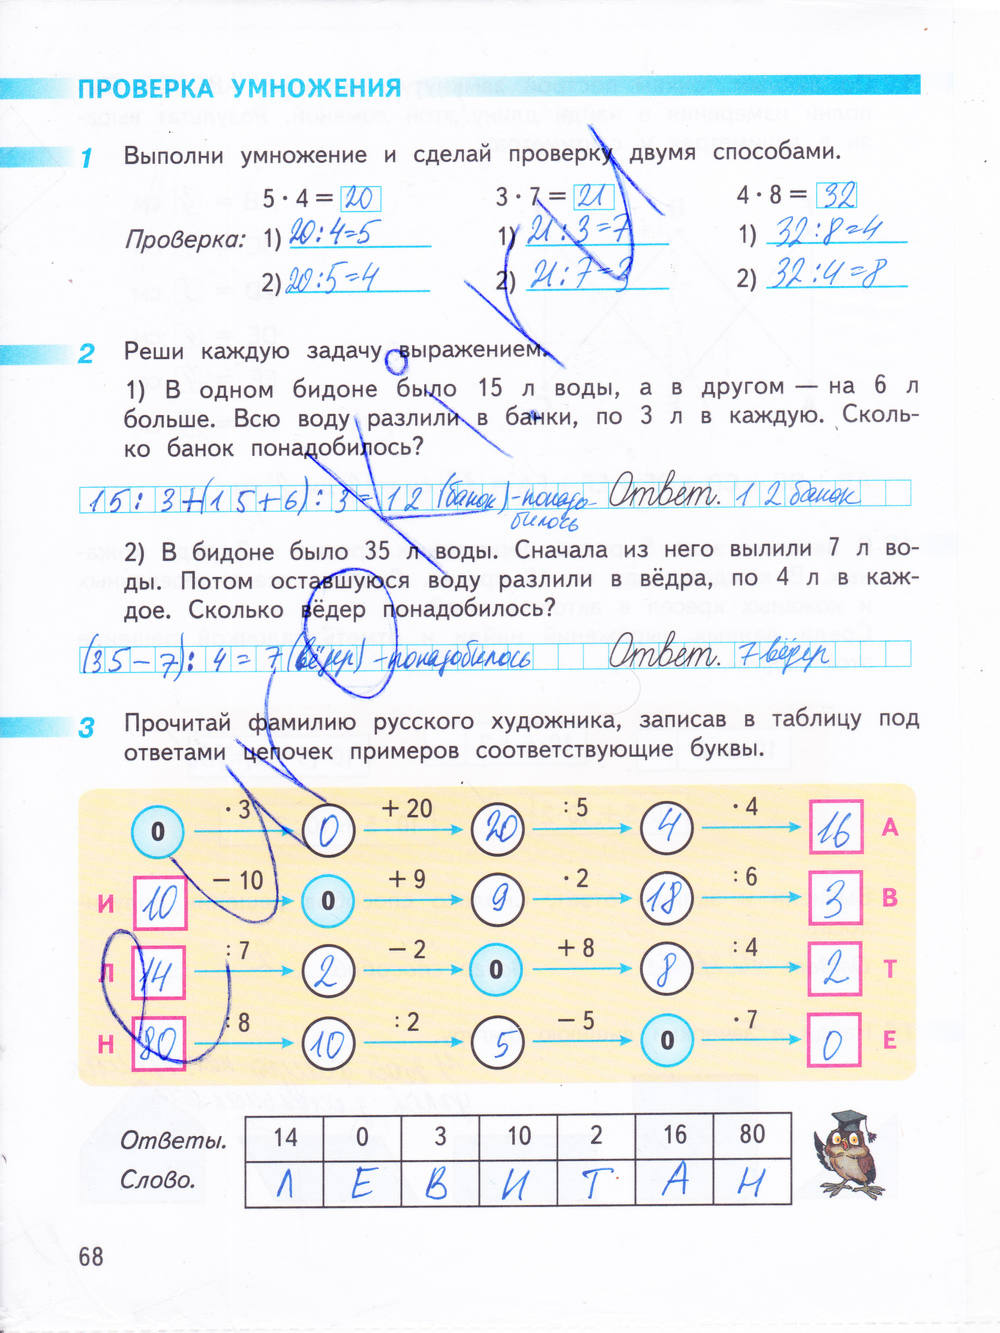 ПРОВЕРКА УМНОЖЕНИЯ
1 Выполни умножение и сделай проверку двумя способами.
5 · 4 = 20 3 · 7 = 21 4 · 8 = 32
Проверка: 1) 20:4=5 1) 21:3=7 1) 32:8=4
2) 20:5=4 2) 21:7=3 2) 32:4=8
2 Реши каждую задачу выражением.
1) В одном бидоне было 15 л воды, а в другом — на 6 л
больше. Всю воду разлили в банки, по 3 л в каждую. Сколь-
ко банок понадобилось?
15:3+(15+6):3=12 (банок)-понадо- Ответ. 12 банок
билось
2) В бидоне было 35 л воды. Сначала из него вылили 7 л во-
ды. Потом оставшуюся воду разлили в вёдра, по 4 л в каж-
дое. Сколько вёдер понадобилось?
(35-7):4=7(вёдер)-понадобилось Ответ. 7 вёдер
3 Прочитай фамилию русского художника, записав в таблицу под
ответами цепочек примеров соответствующие буквы.
0 · 3 0 + 20 20 : 5 4 · 4 16 А
И 10 − 10 0 + 9 9 · 2 18 : 6 3 В
Л 14 : 7 2 − 2 0 + 8 8 : 4 2 Т
Н 80 : 8 10 : 2 5 − 5 0 · 7 0 Е
Ответы. 14 0 3 10 2 16 80
Слово. Л Е В И Т А Н
68